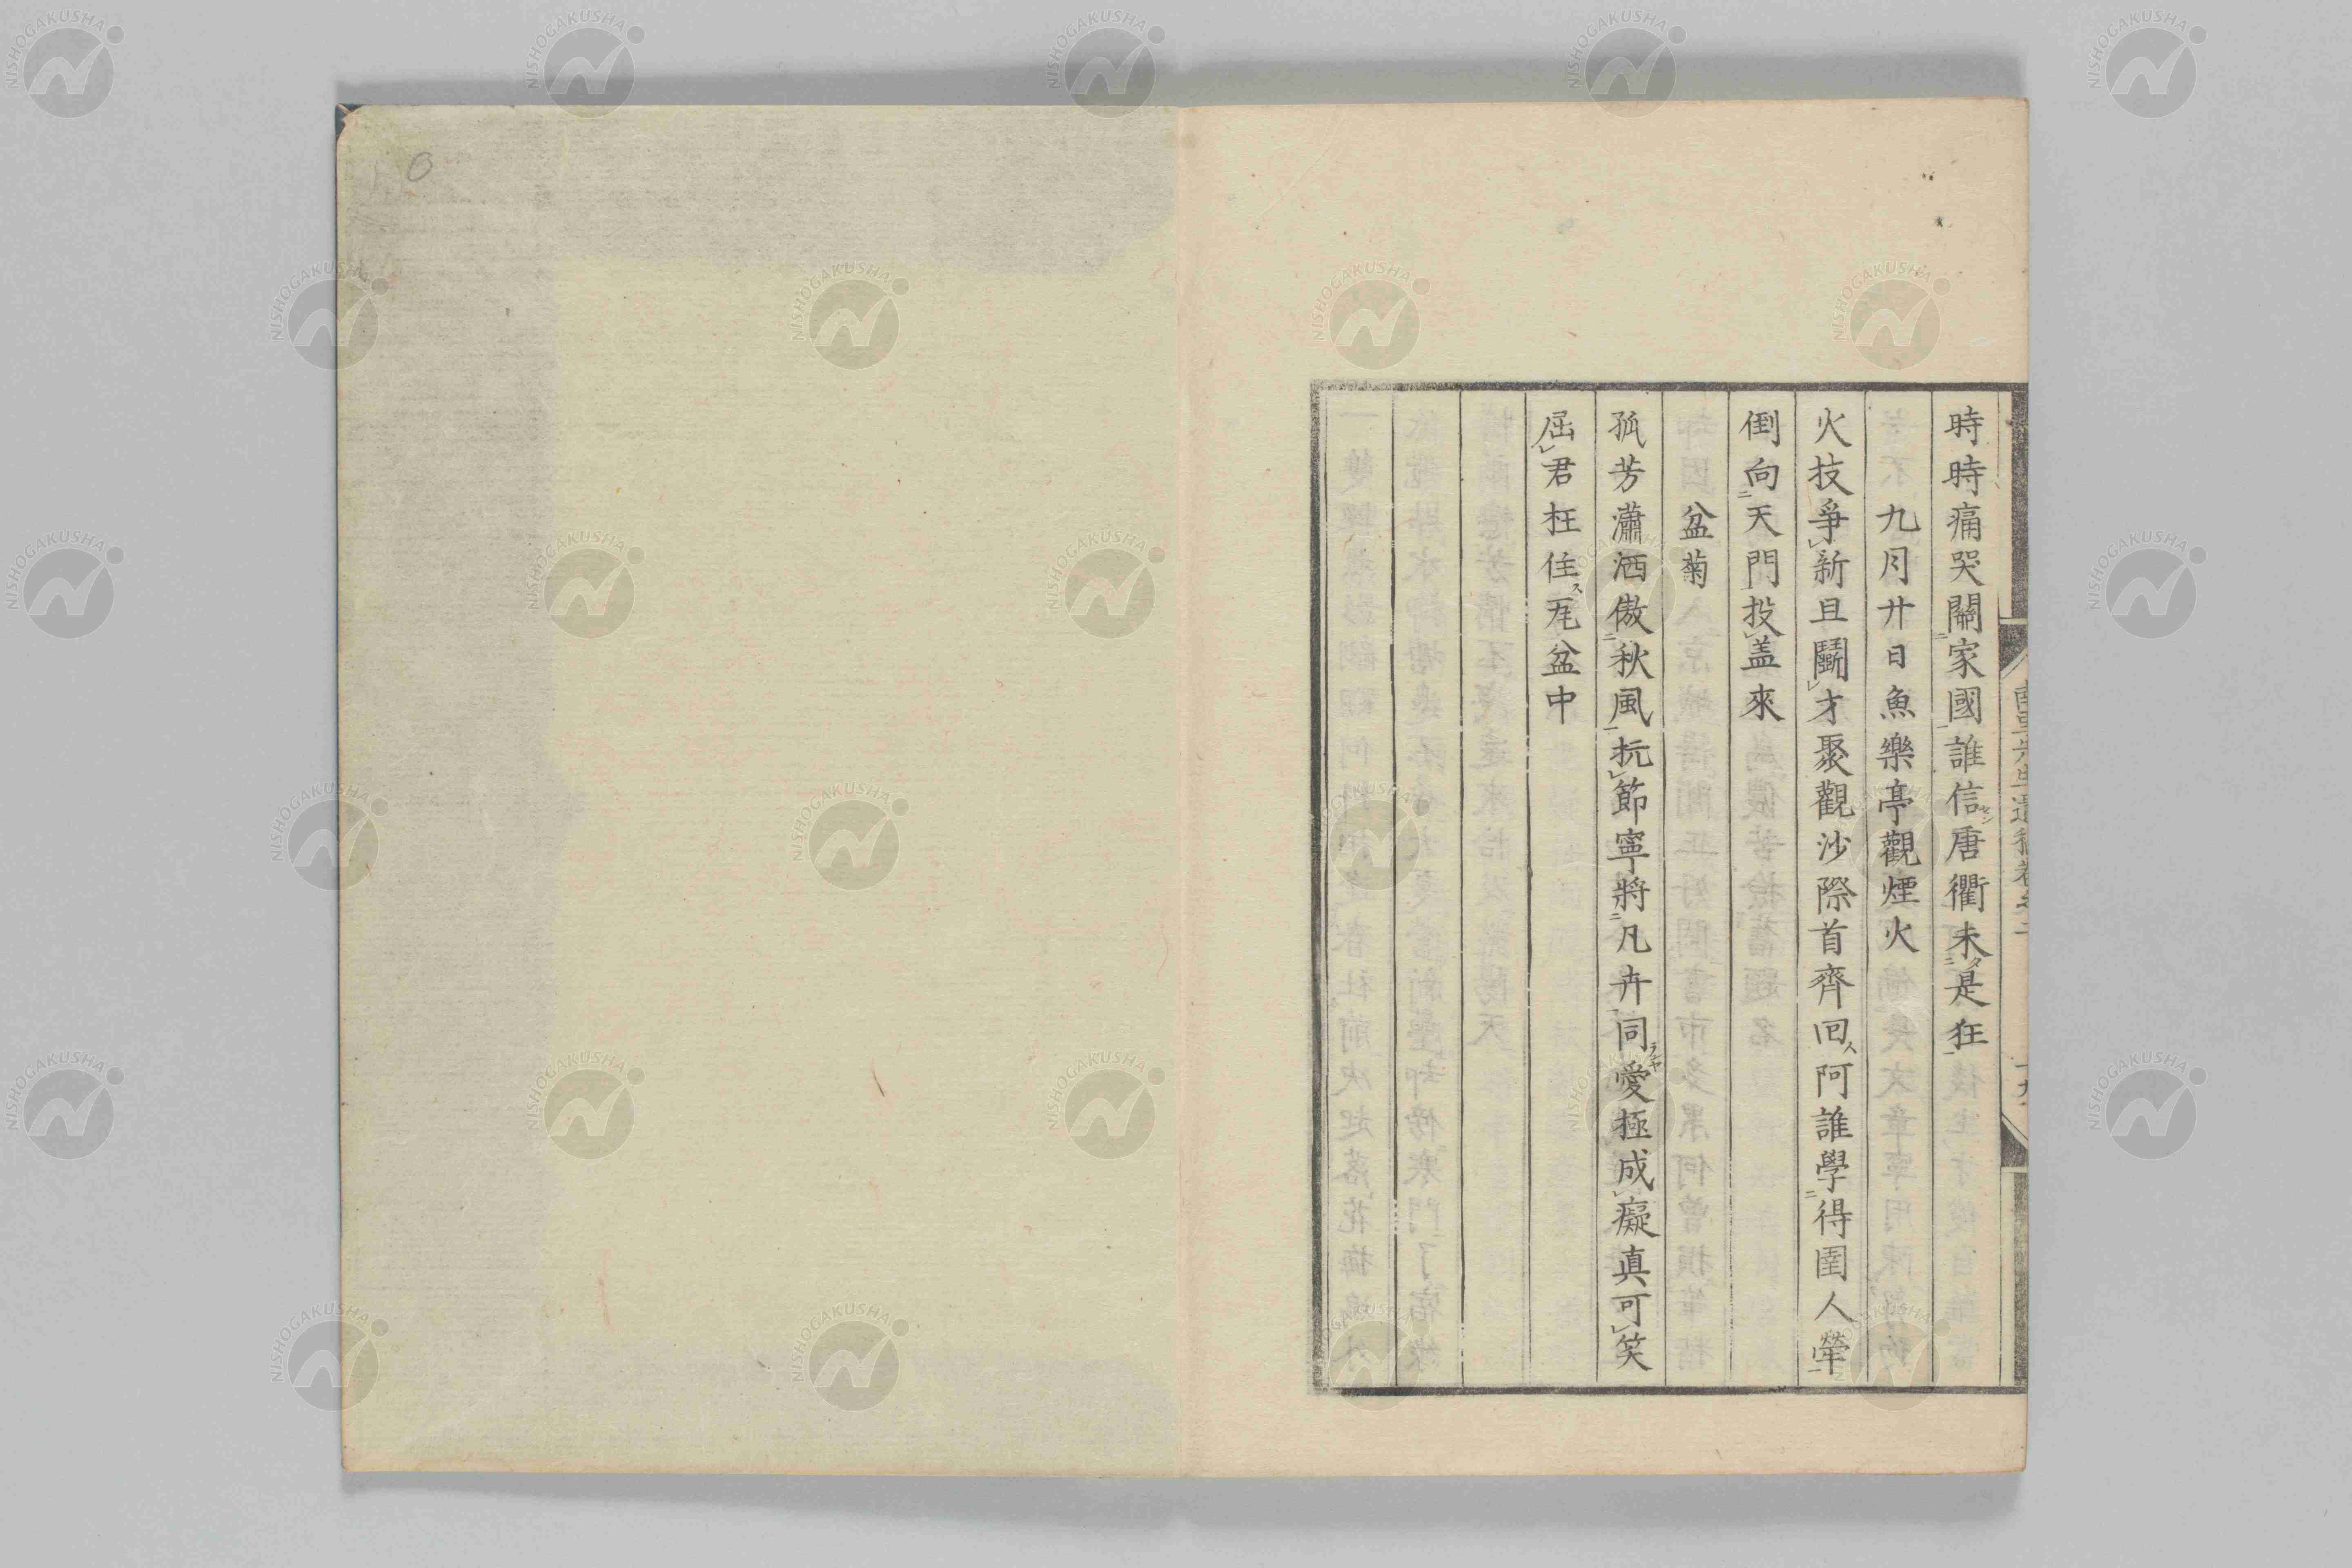 時時痛哭關家國誰信唐衢未是狂
九月廿日魚樂亭觀煙火
火技爭新且鬪才聚觀沙際首齊回阿誰學得圉人犖
倒向天門投盖來
盆菊
孤芳瀟洒傲秋風抗節寧將凡卉同愛極成癡真可笑
屈君枉住瓦盆中
NISHOGAKUSHA